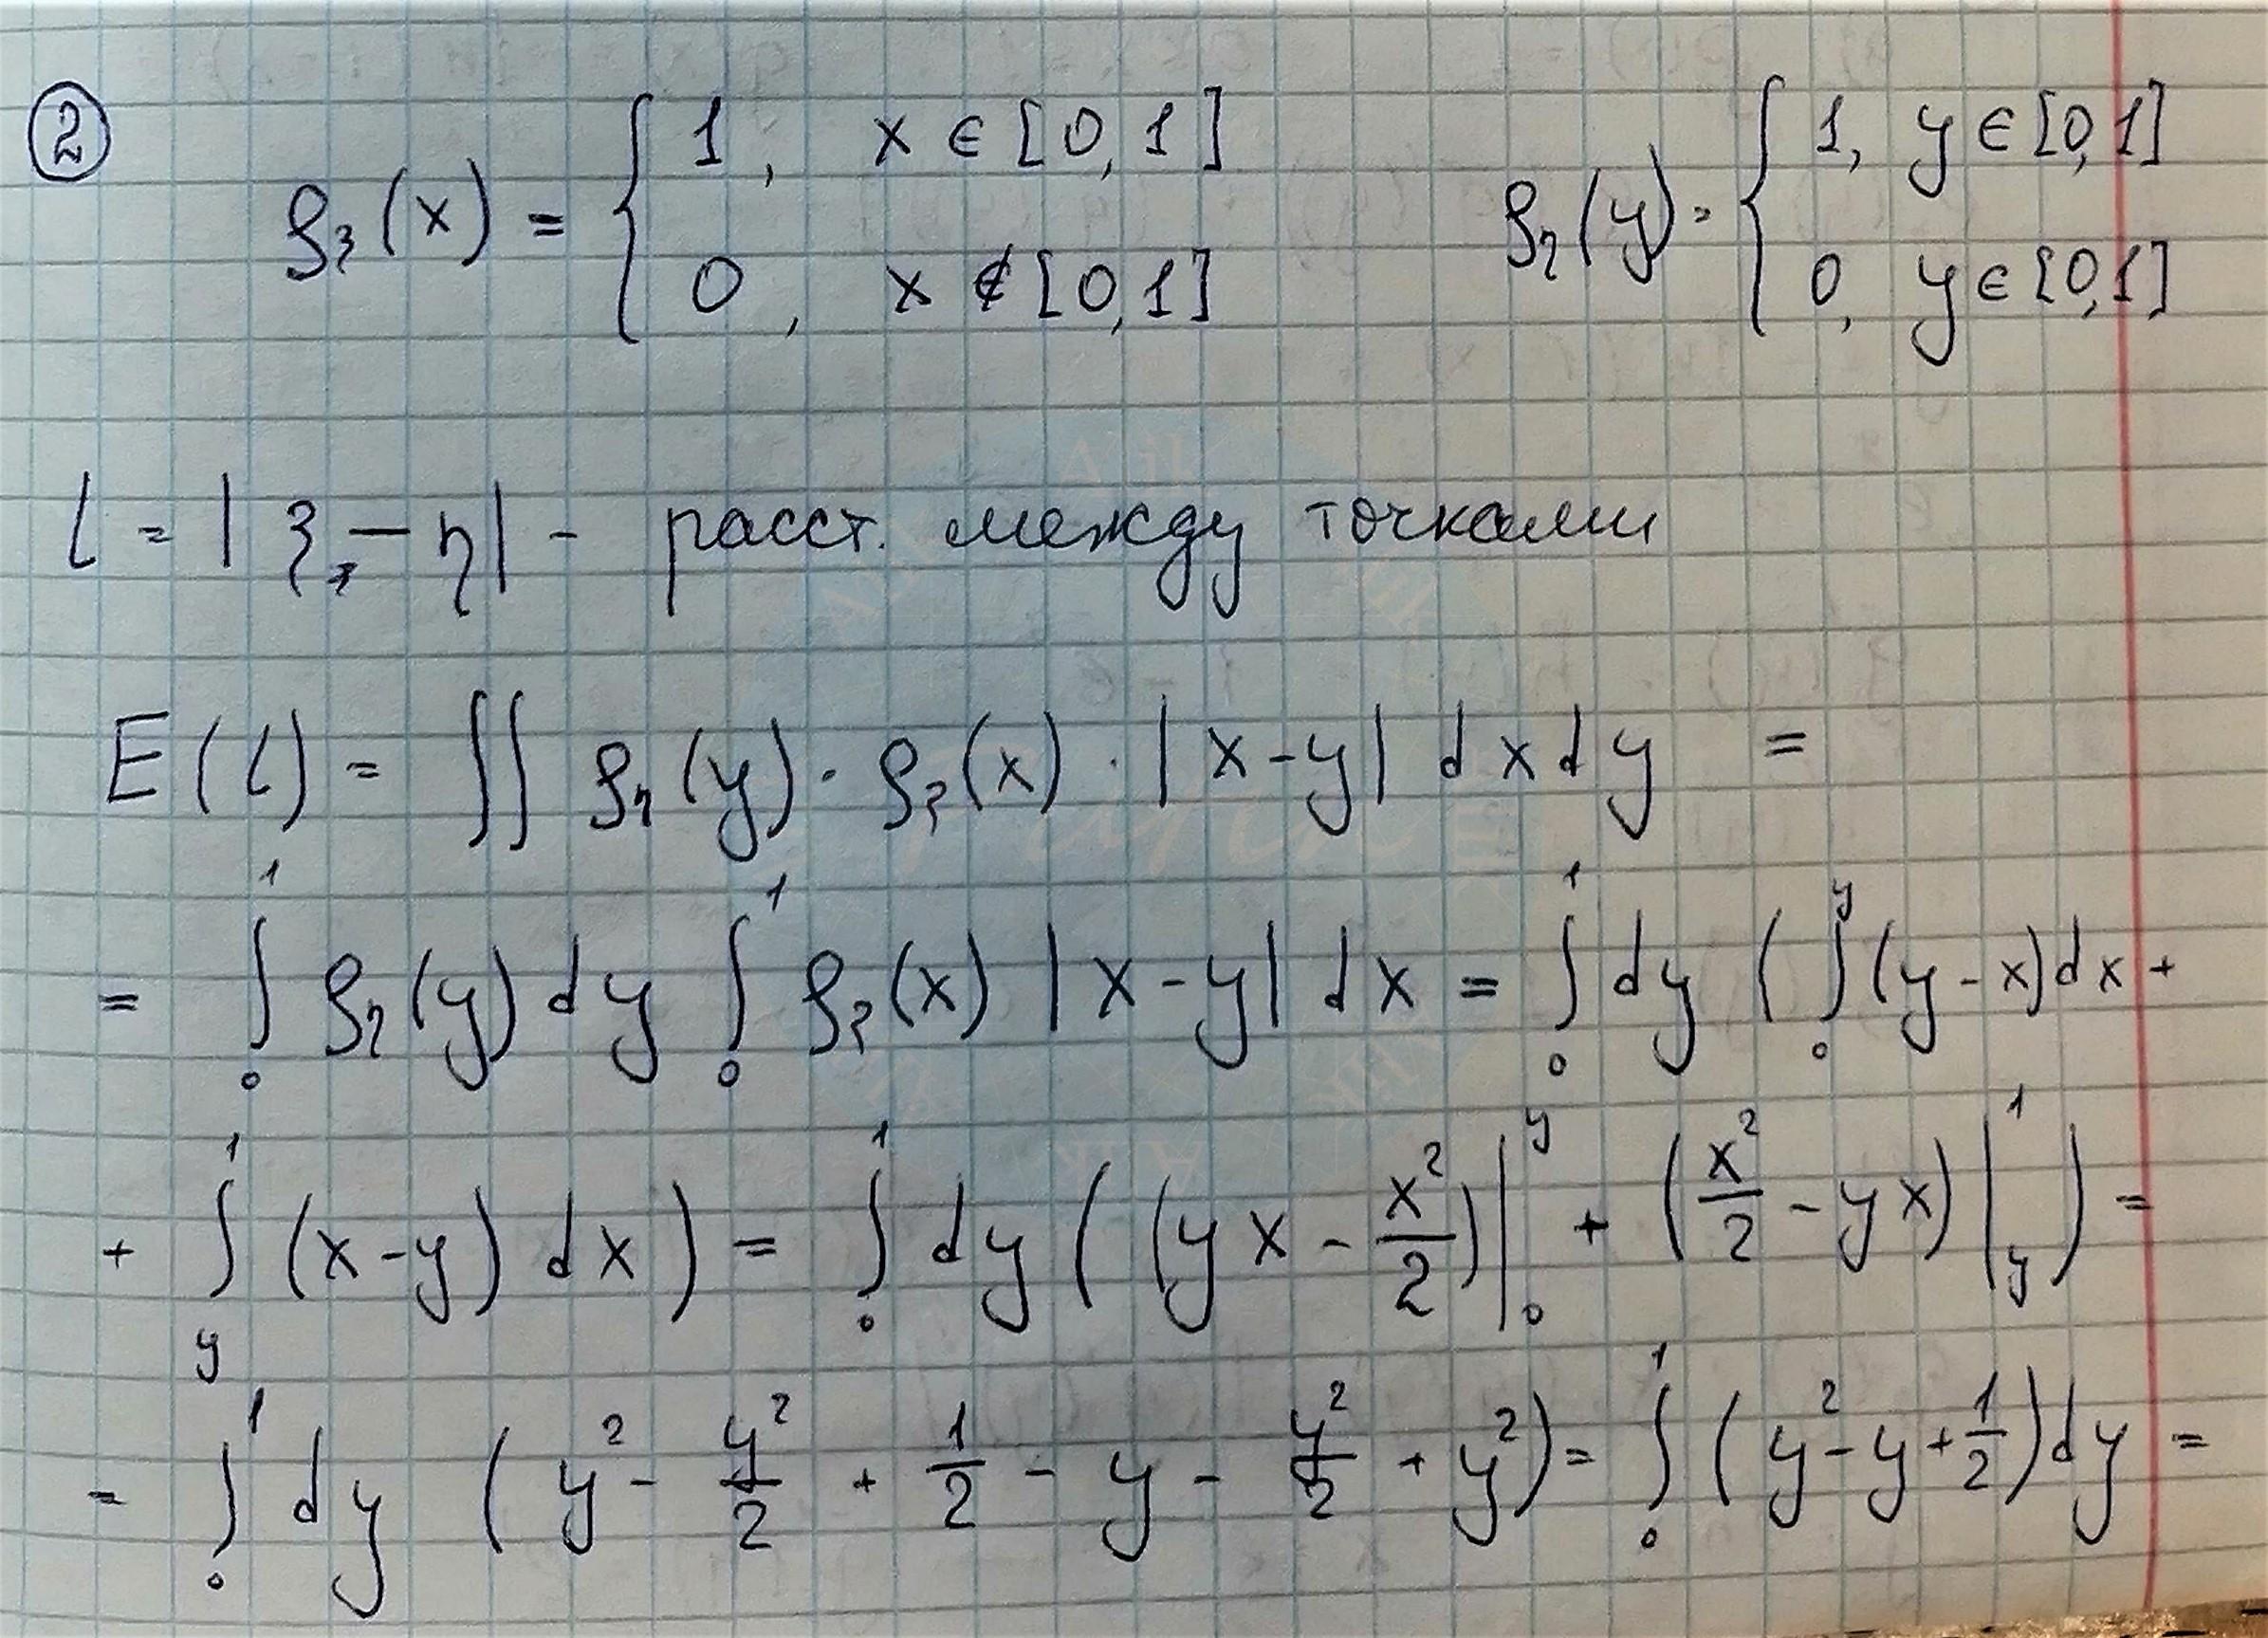 ②
ρ_ξ(x) = { 1, x ∈ [0,1]
0, x ∉ [0,1]
ρ_η(y) = { 1, y ∈ [0,1]
0, y ∈ [0,1]
l = | ξ - η | - расст. между точками
E(l) = ∬ ρ_η(y) · ρ_ξ(x) · | x - y | dx dy =
= ∫₀¹ ρ_η(y) dy ∫₀¹ ρ_ξ(x) | x - y | dx = ∫₀¹ dy ( ∫₀^y (y - x) dx +
+ ∫_y^1 (x - y) dx ) = ∫₀¹ dy ( (yx - x²/2) |₀^y + (x²/2 - yx) |_y^1 ) =
= ∫₀¹ dy ( y² - y²/2 + 1/2 - y - y²/2 + y² ) = ∫₀¹ ( y² - y + 1/2 ) dy =